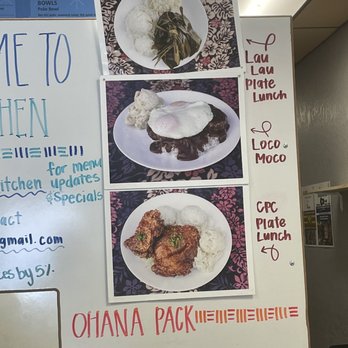 BOWLS
Poke Bowl
ME TO
HEN
for menu
Kitchen updates
& Specials
act
gmail.com
es by 5%
Lau
Lau
Plate
Lunch
Loco
Moco
CPC
Plate
Lunch
OHANA PACK